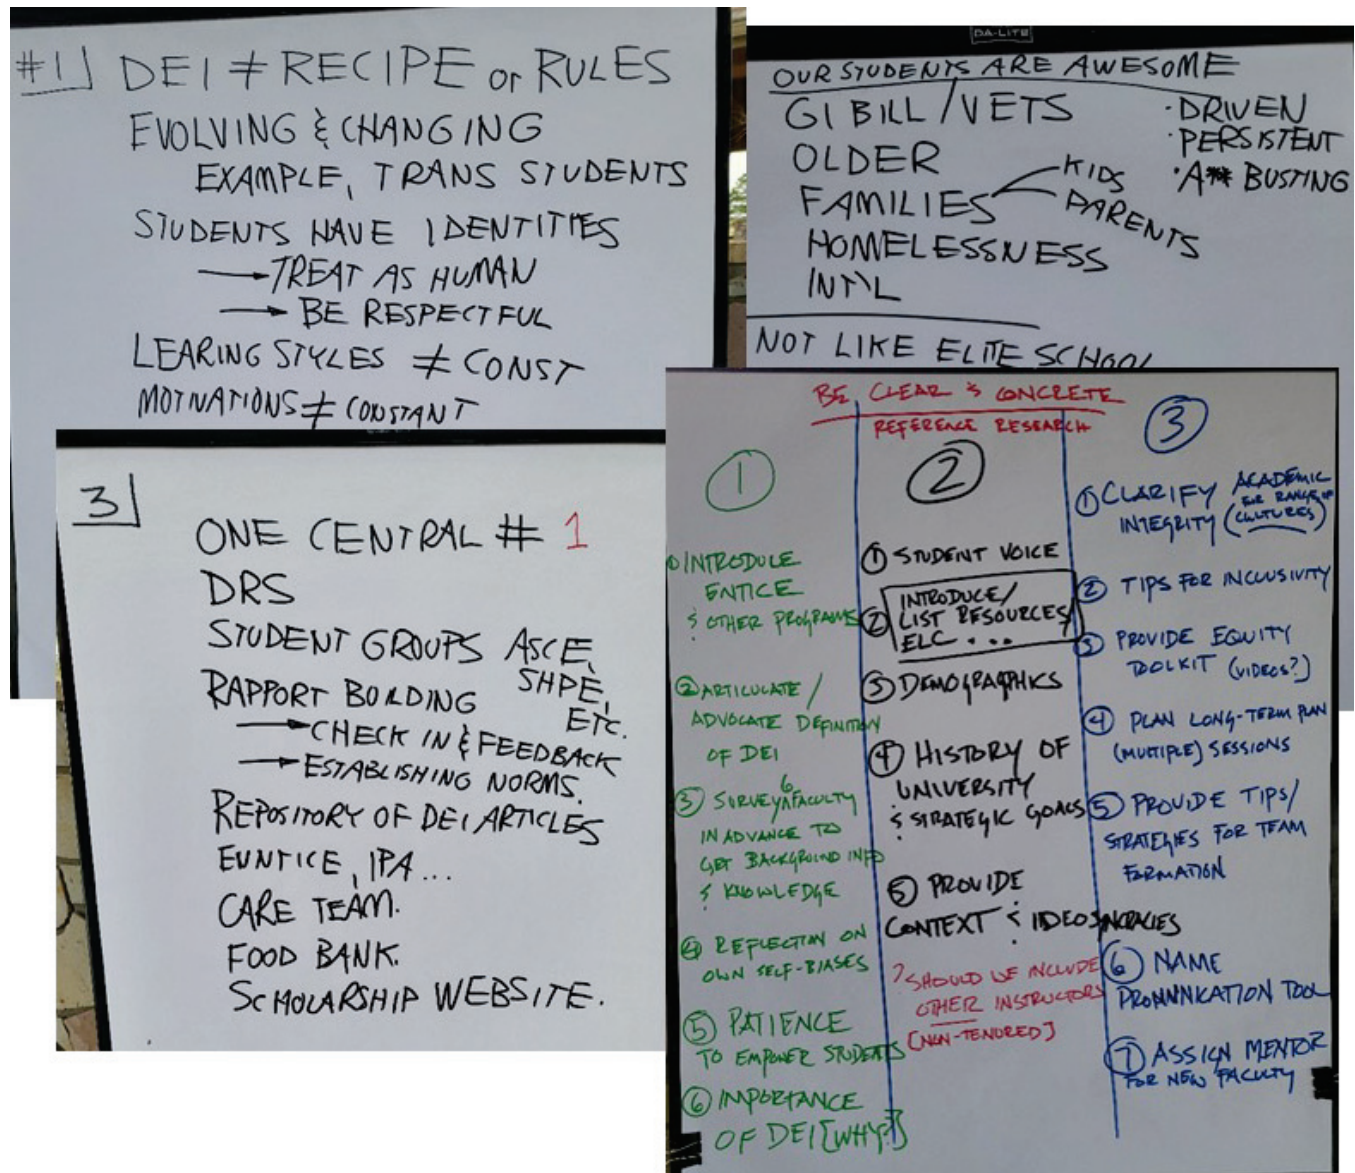 #1
DEI ≠ RECIPE or RULES
EVOLVING & CHANGING
EXAMPLE, TRANS STUDENTS
STUDENTS HAVE IDENTITIES
→ TREAT AS HUMAN
→ BE RESPECTFUL
LEARING STYLES ≠ CONST
MOTIVATIONS ≠ CONSTANT
DA-LITE
OUR STUDENTS ARE AWESOME
GI BILL / VETS
OLDER
FAMILIES
KIDS
PARENTS
HOMELESSNESS
INT'L
· DRIVEN
· PERSISTENT
· A** BUSTING
NOT LIKE ELITE SCHOOL
3
ONE CENTRAL # 1
DRS
STUDENT GROUPS ASCE,
SHPE,
ETC.
RAPPORT BUILDING
→ CHECK IN & FEEDBACK
→ ESTABLISHING NORMS.
REPOSITORY OF DEI ARTICLES
EUNTICE, IPA...
CARE TEAM.
FOOD BANK.
SCHOLARSHIP WEBSITE.
BE CLEAR & CONCRETE
REFERENCE RESEARCH
1
① INTRODUCE
ENTICE
& OTHER PROGRAMS
② ARTICULATE /
ADVOCATE DEFINITION
OF DEI
③ SURVEY 6 FACULTY
IN ADVANCE TO
GET BACKGROUND INFO
& KNOWLEDGE
④ REFLECTION ON
OWN SELF-BIASES
⑤ PATIENCE
TO EMPOWER STUDENTS
⑥ IMPORTANCE
OF DEI [WHY?]
2
① STUDENT VOICE
② INTRODUCE/
LIST RESOURCES/
ELC ...
③ DEMOGRAPHICS
④ HISTORY OF
UNIVERSITY
& STRATEGIC GOALS
⑤ PROVIDE
CONTEXT & IDEOSYNCRACIES
? SHOULD WE INCLUDE
OTHER INSTRUCTORS
[NON-TENURED]
3
① CLARIFY ACADEMIC
INTEGRITY (FOR RANGE OF
CULTURES)
② TIPS FOR INCLUSIVITY
③ PROVIDE EQUITY
TOOLKIT (VIDEOS?)
④ PLAN LONG-TERM PLAN
(MULTIPLE) SESSIONS
⑤ PROVIDE TIPS/
STRATEGIES FOR TEAM
FORMATION
⑥ NAME
PRONNNKATION TOOL
⑦ ASSIGN MENTOR
FOR NEW FACULTY